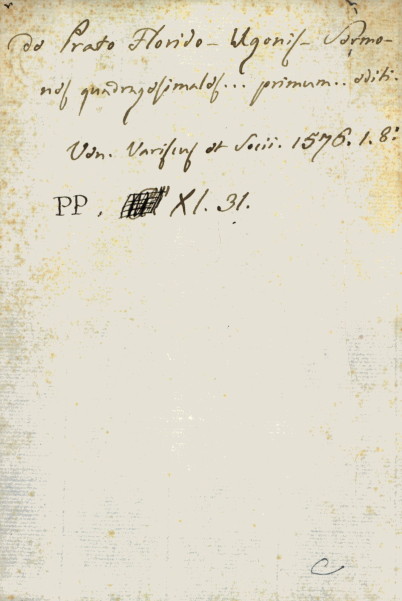 de Prato Florido - Ugonis - Sermo-
nes quadragesimales... primum.. editi.
Ven. Variscus et Socii. 1576. 1. 8:
PP, XI. 31.
C